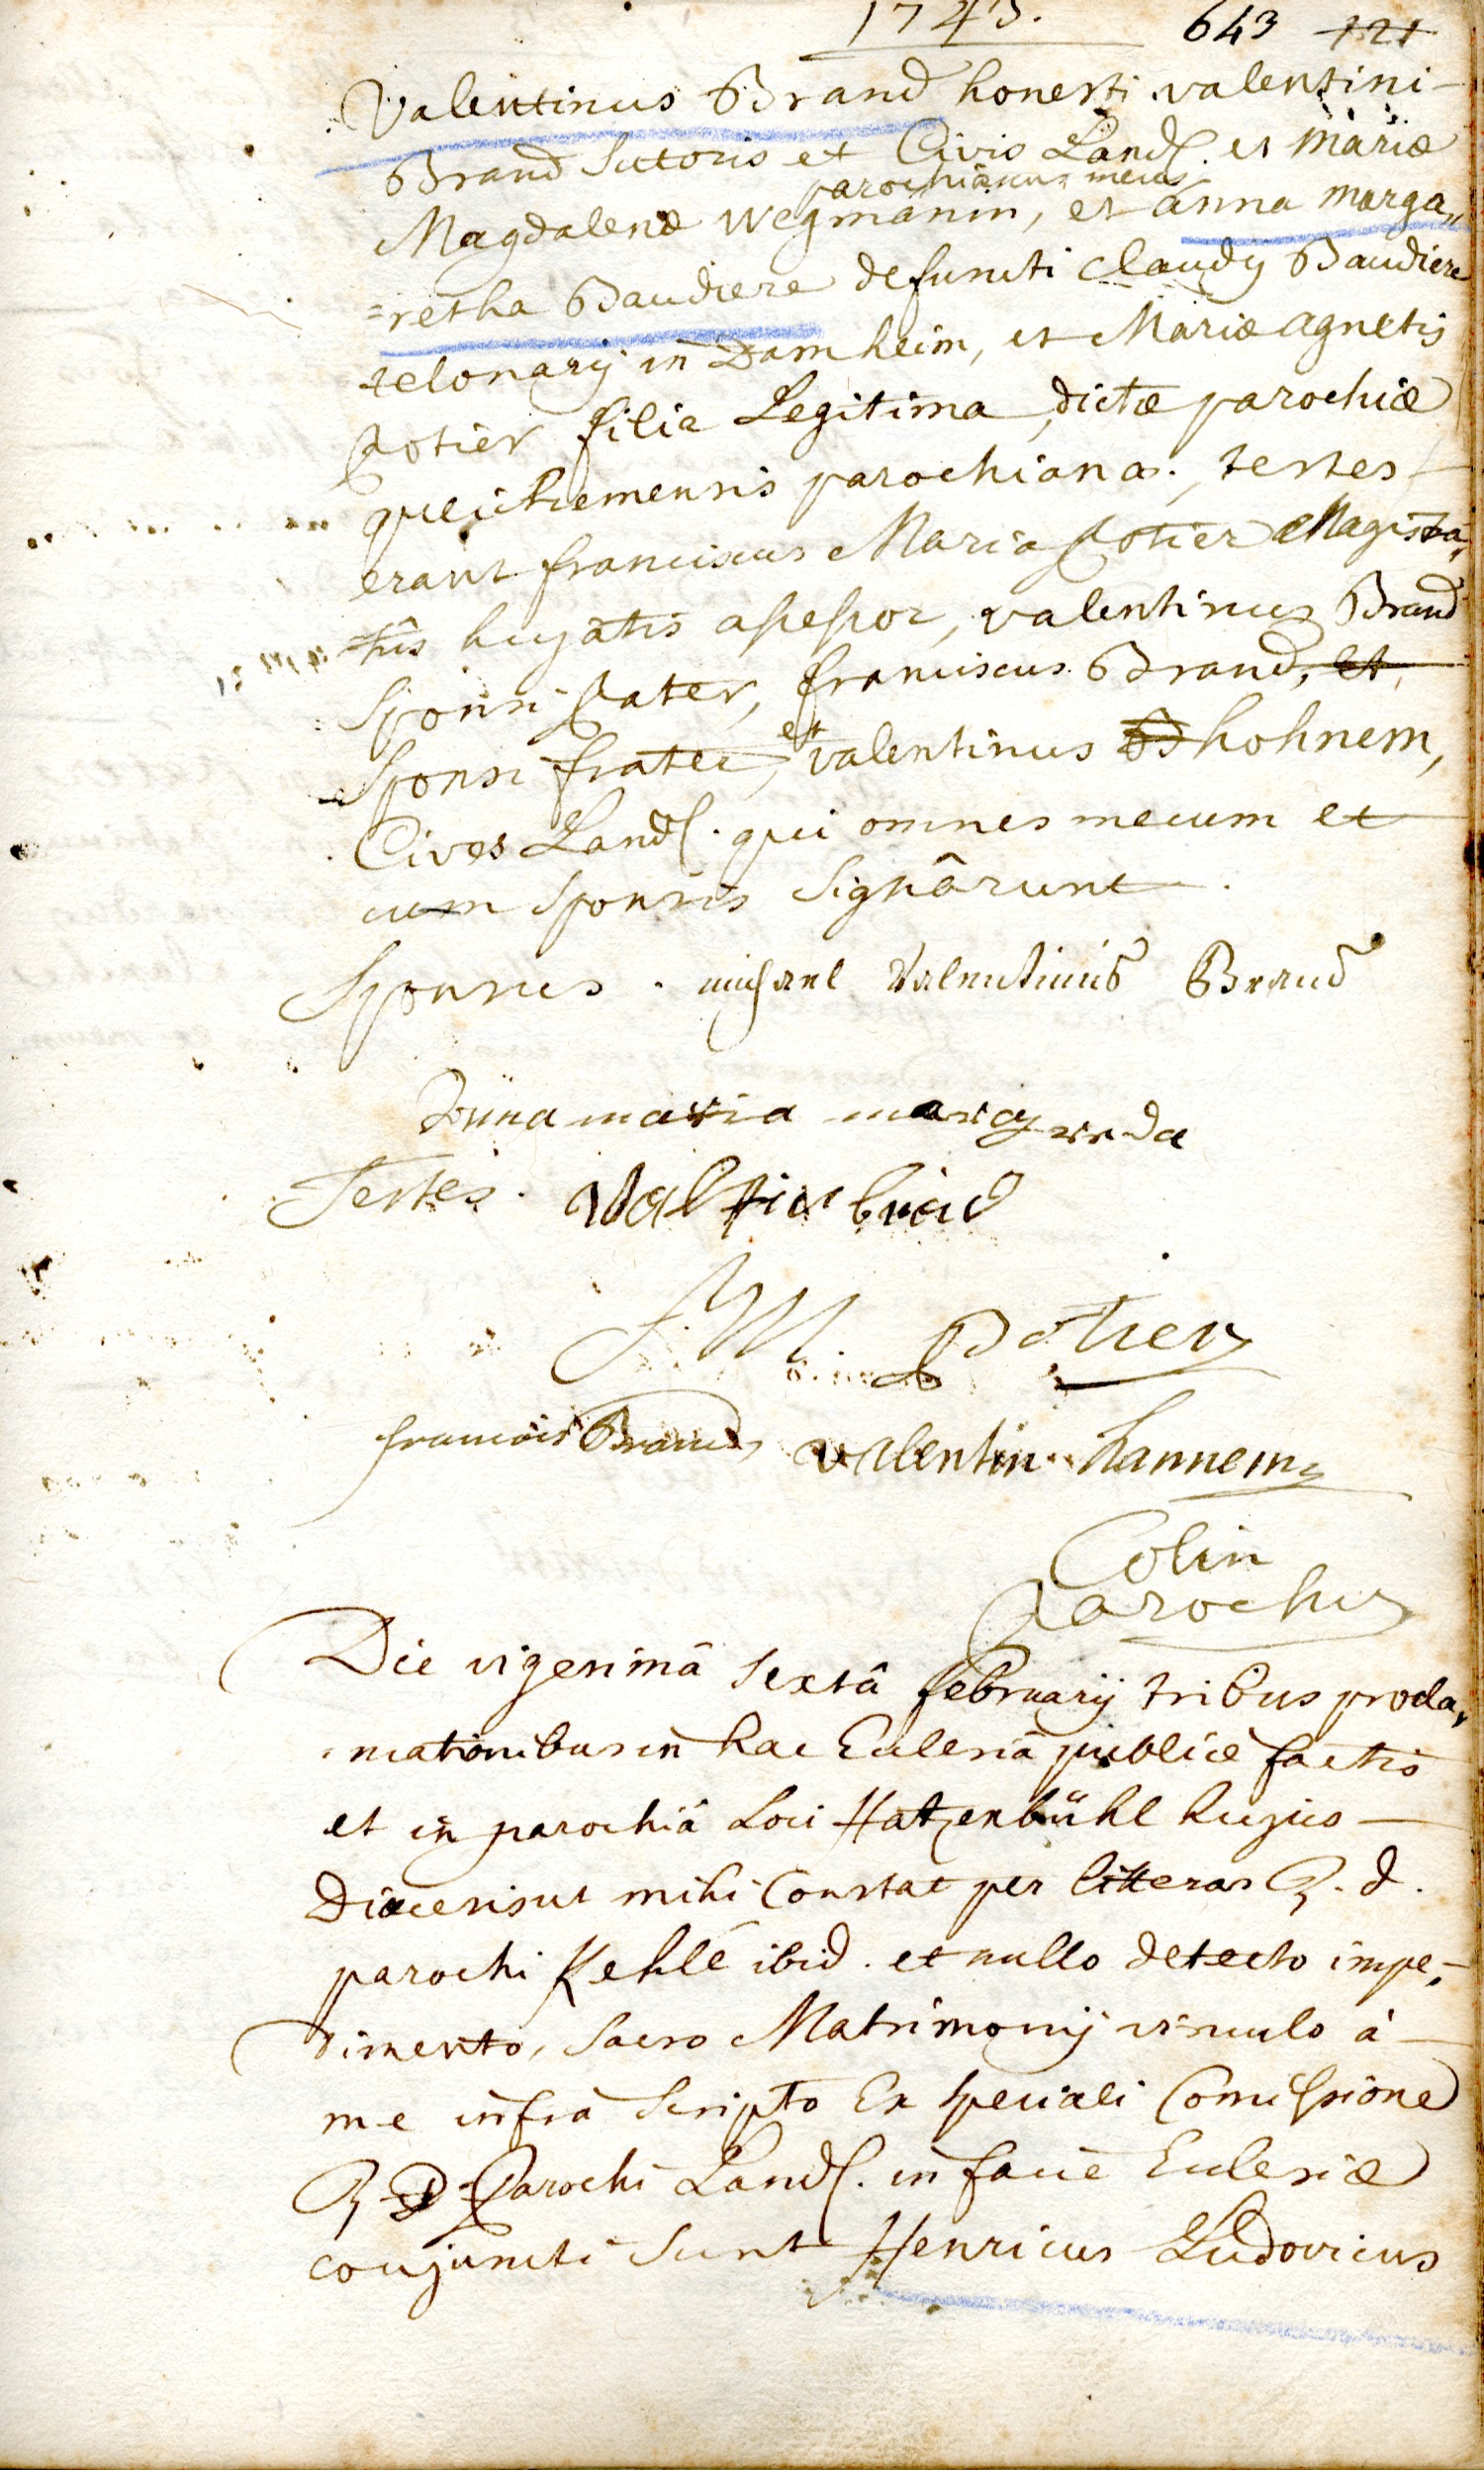 1743. 643 121
Valentinus Brand honesti valentini
Brand Sutoris et Civis Land. et Mariæ
parochianus meus
Magdalenæ Wegmanin, et anna marga„
=retha Baudiere defuncti Claudij Baudiere
telonarij in Damheim, et Mariæ agnetis
Potier filia Legitima, dictæ parochiæ
queichemensis parochiana. testes
erant franciscus Maria Potier Magistra„
=tûs hujatis assessor, valentinus Brand
Sponsi Pater, franciscus Brand, et
Sponsi frater, et valentinus hohnem,
Cives Land. qui omnes mecum et
cum Sponsis Signârunt.
Sponsus. michael Valentinus Brand
Anna maria margreda
Testes. Valtin brad
F. M. Potier
francois Brand valentin hannem
Colin
Parochus
Die vigesimâ Sextâ februarij tribus procla„
mationibus in hac Ecclesiâ publicè factis
et in parochiâ Loci Hatzenbühl hujus
Diœcesis ut mihi Constat per litteras R. d.
parochi Kehlé ibid. et nullo detecto impe„
dimento, Sacro Matrimonij vinculo à
me infrà Scripto Ex speciali Comissione
R. D. Parochi Land. in facie Ecclesiæ
conjuncti Sunt Henricus Ludovicus